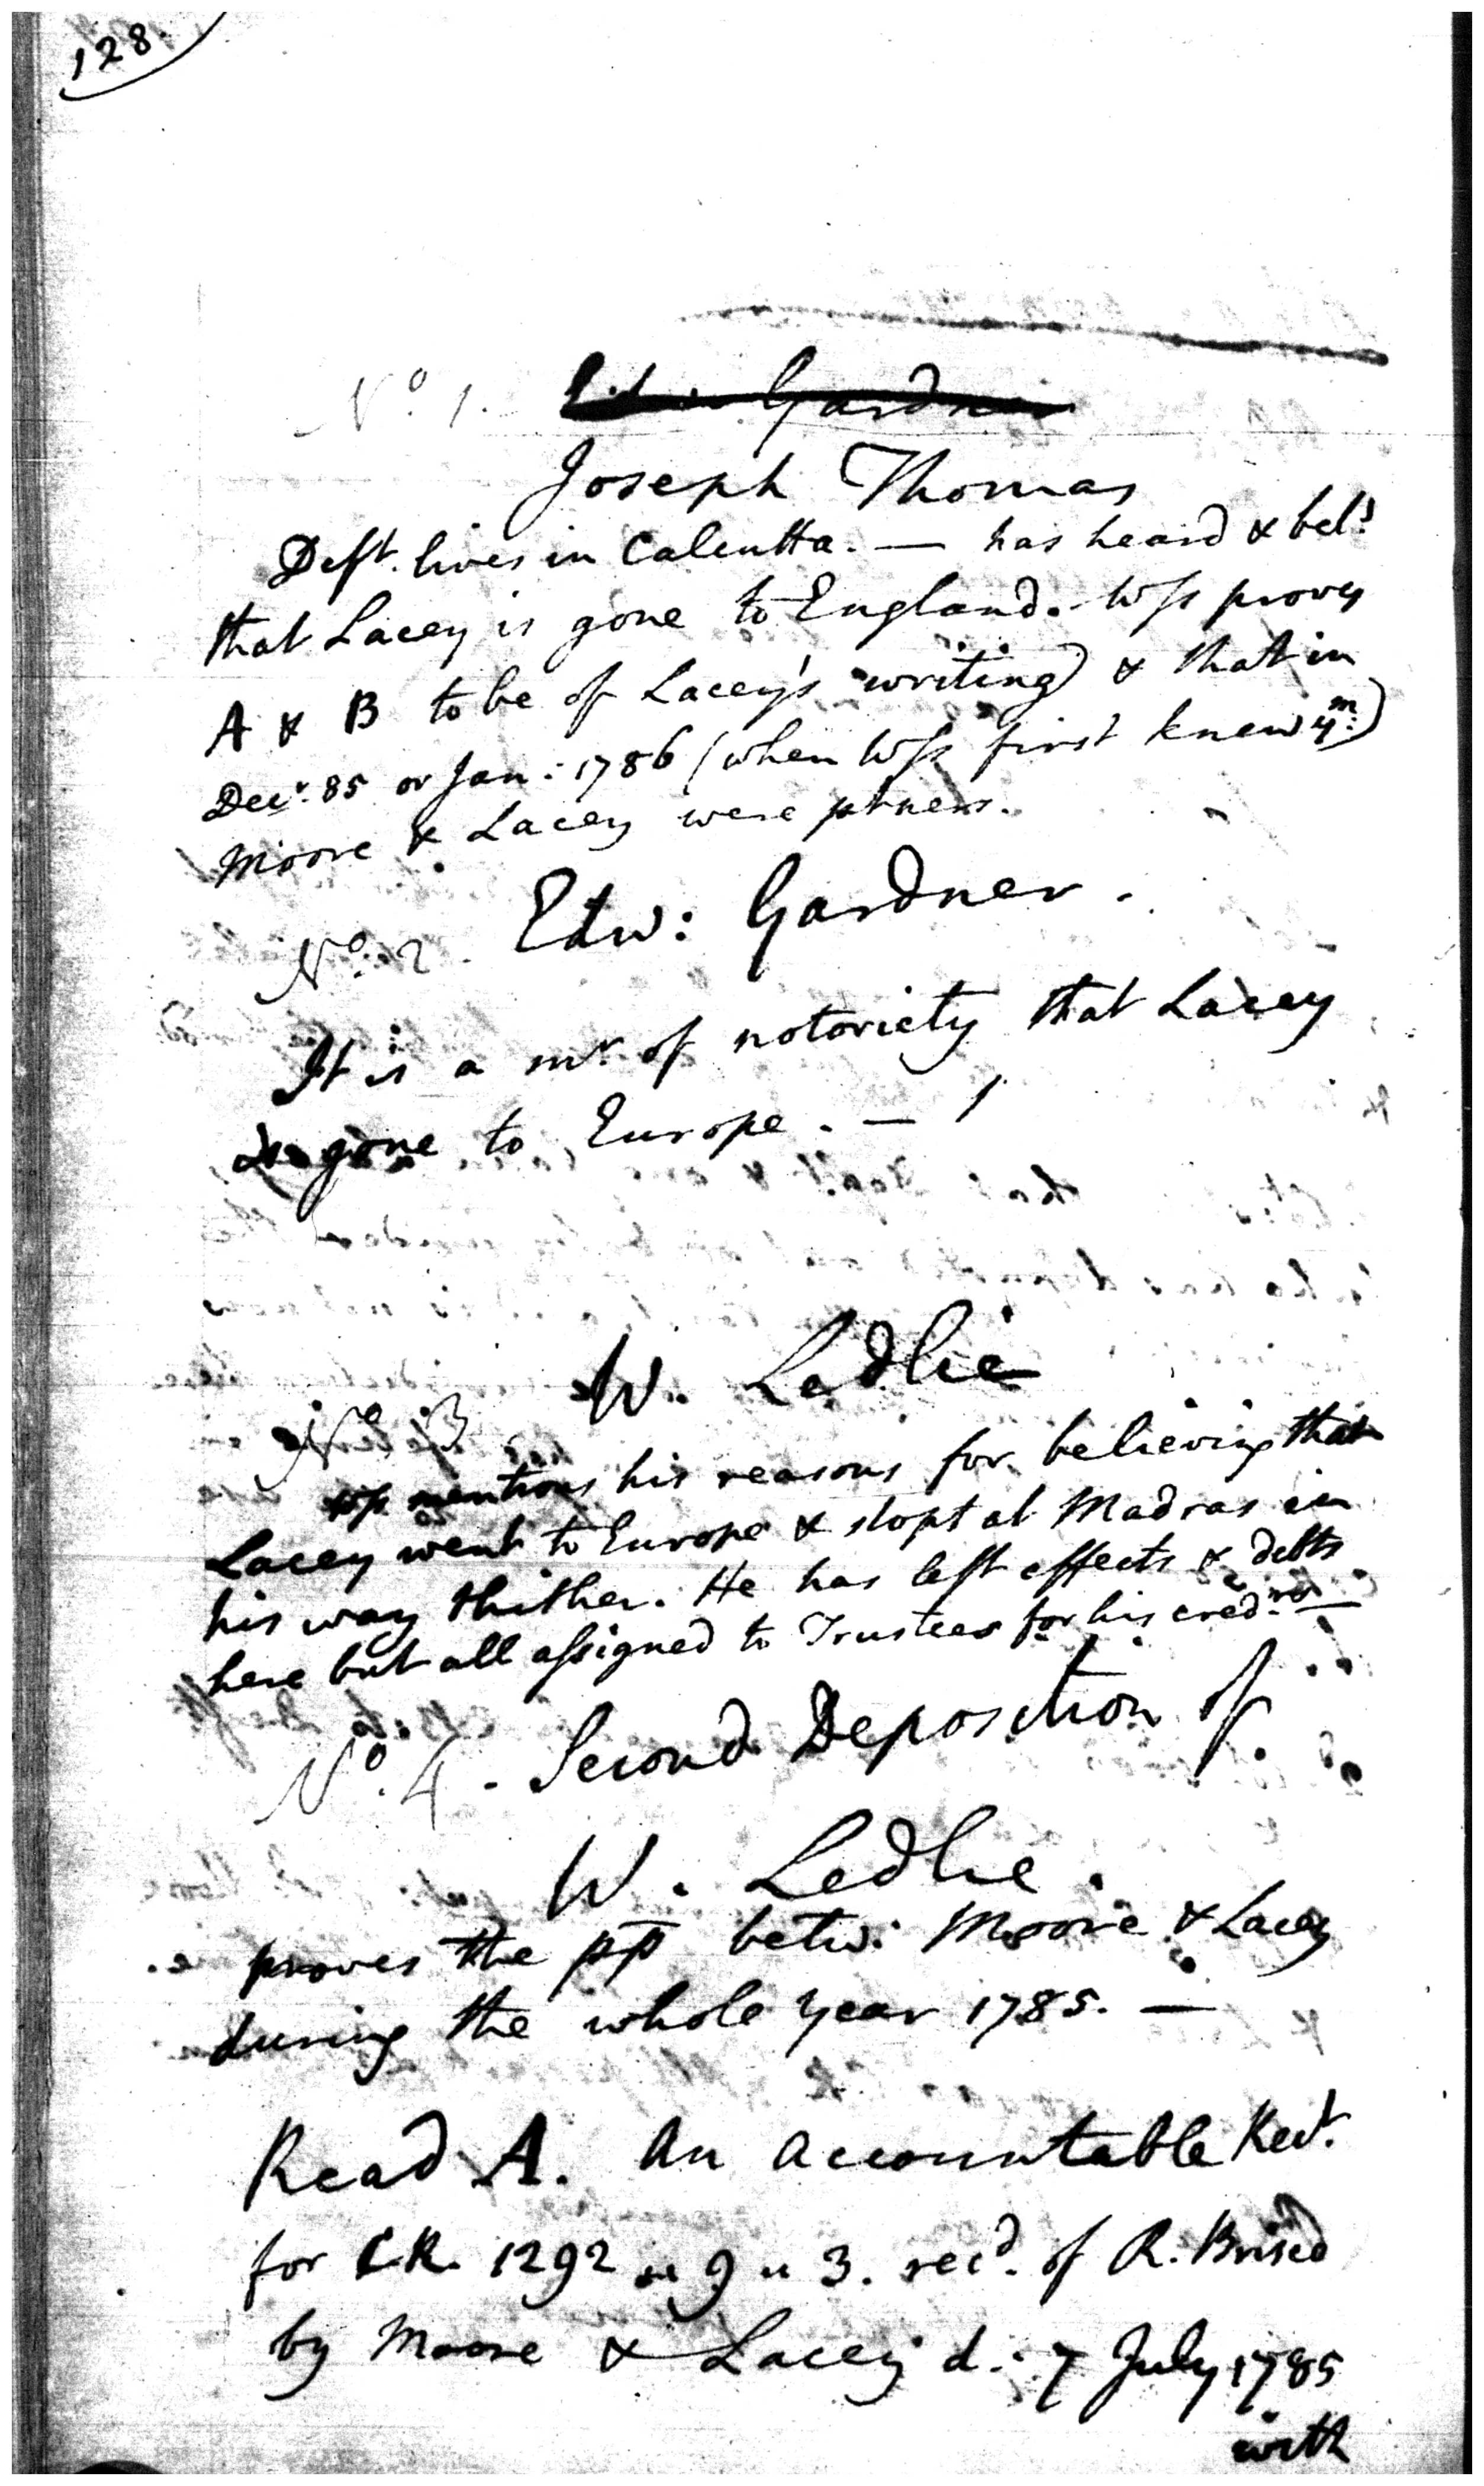 128
No. 1. Edw: Gardner
Joseph Thomas
Deft. lives in Calcutta. — has heard & bels.
that Lacey is gone to England. Wss proves
A & B to be of Lacey's writing & that in
Decr. 85 or Jan: 1786 (when Wss first knew ym.)
Moore & Lacey were ptners.
No. 2. Edw: Gardner.
It is a mr. of notoriety that Lacey
is gone to Europe. —
W. Ledlie
No. 3
Wss mentions his reasons for believing that
Lacey went to Europe & stopt at Madras in
his way thither. He has left effects & debts
here but all assigned to Trustees for his credrs. —
No. 4. Second Deposition of
W. Ledlie.
proves the pp betw: Moore & Lacey
during the whole year 1785. —
Read A. An accountable Rect.
for C.R. 1292 " 9 " 3. recd. of R. Brisco
by Moore & Lacey d. 7 July 1785
with